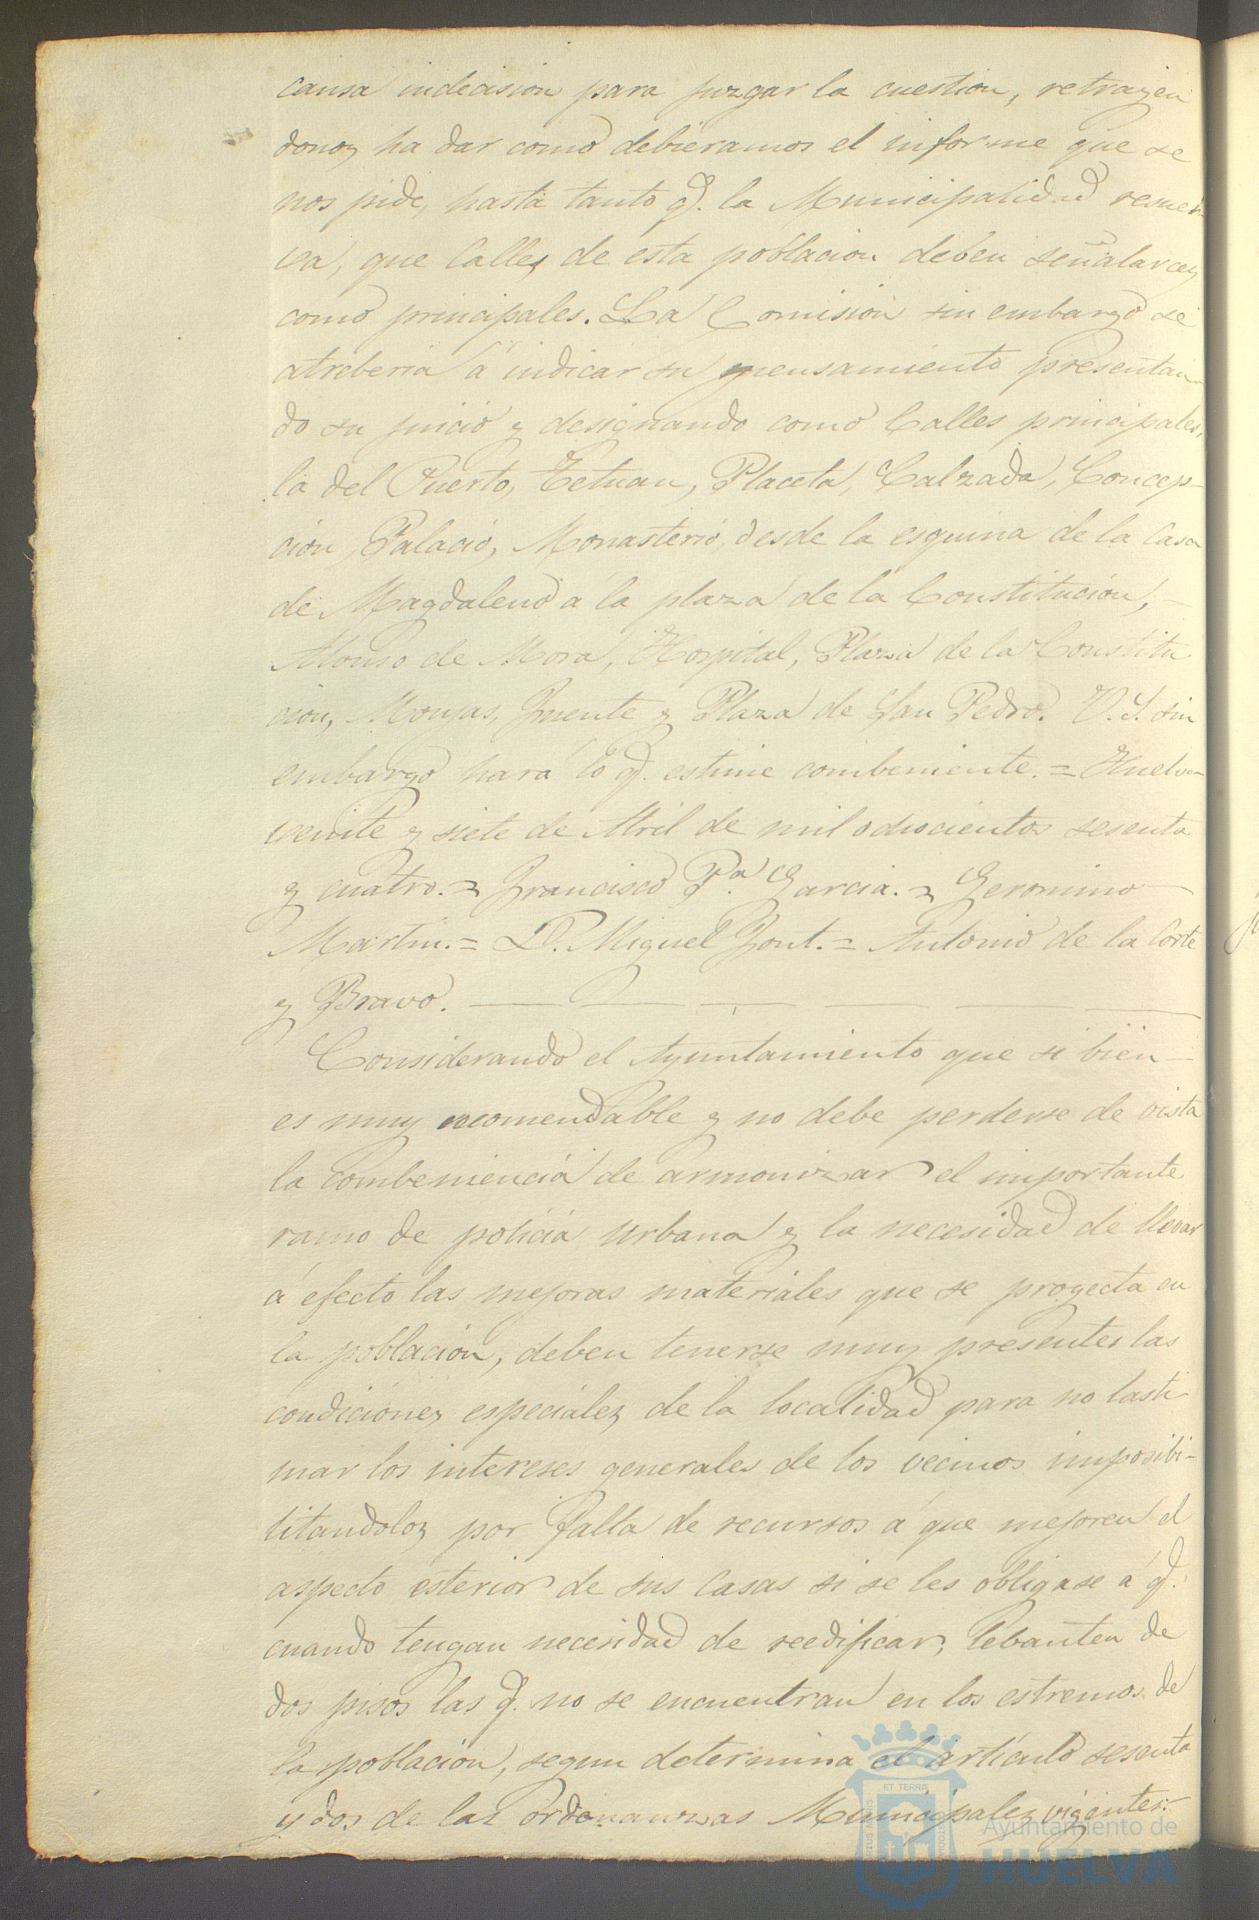 causa indecision para juzgar la cuestion, retrayen
donos ha dar como debieramos el informe que se
nos pide, hasta tanto q. la Municipalidad resuel-
va, que Calles de esta poblacion deben señalarces
como principales. La Comision sin embargo se
atreberia á indicar su pensamiento presentan-
do su juicio y designando como Calles principales,
la del Puerto, Tetuan, Placeta, Calzada, Concep-
cion, Palacio, Monasterio, desde la esquina de la Casa
de Magdaleno á la plaza de la Constitucion,
Alonso de Mora, Hospital, Plaza de la Constitu
cion, Monjas, Fuente y Plaza de San Pedro. V. S. sin
embargo hará lo q. estime combeniente. = Huelva
veinte y siete de Abril de mil ochocientos sesenta
y cuatro. = Francisco P.ª Garcia. = Geronimo
Martin. = D. Miguel Font. = Antonio de la Corte
y Bravo.
Considerando el Ayuntamiento que si bien
es muy recomendable y no debe perderse de vista
la combeniencia de armonizar el importante
ramo de policia urbana y la necesidad de llevar
á efecto las mejoras materiales que se proyecta en
la poblacion, deben tenerse muy presentes las
condiciones especiales de la localidad para no lasti-
mar los intereses generales de los vecinos imposibi-
litandolos por falta de recursos á que mejoren el
aspecto esterior de sus casas si se les obligase á q.
cuando tengan necesidad de reedificar, lebanten de
dos pisos las q. no se encuentran en los estremos de
la poblacion, segun determina el artículo sesenta
y dos de las ordenanzas Municipales vigentes.
ET TERRÆ
Ayuntamiento de
HUELVA